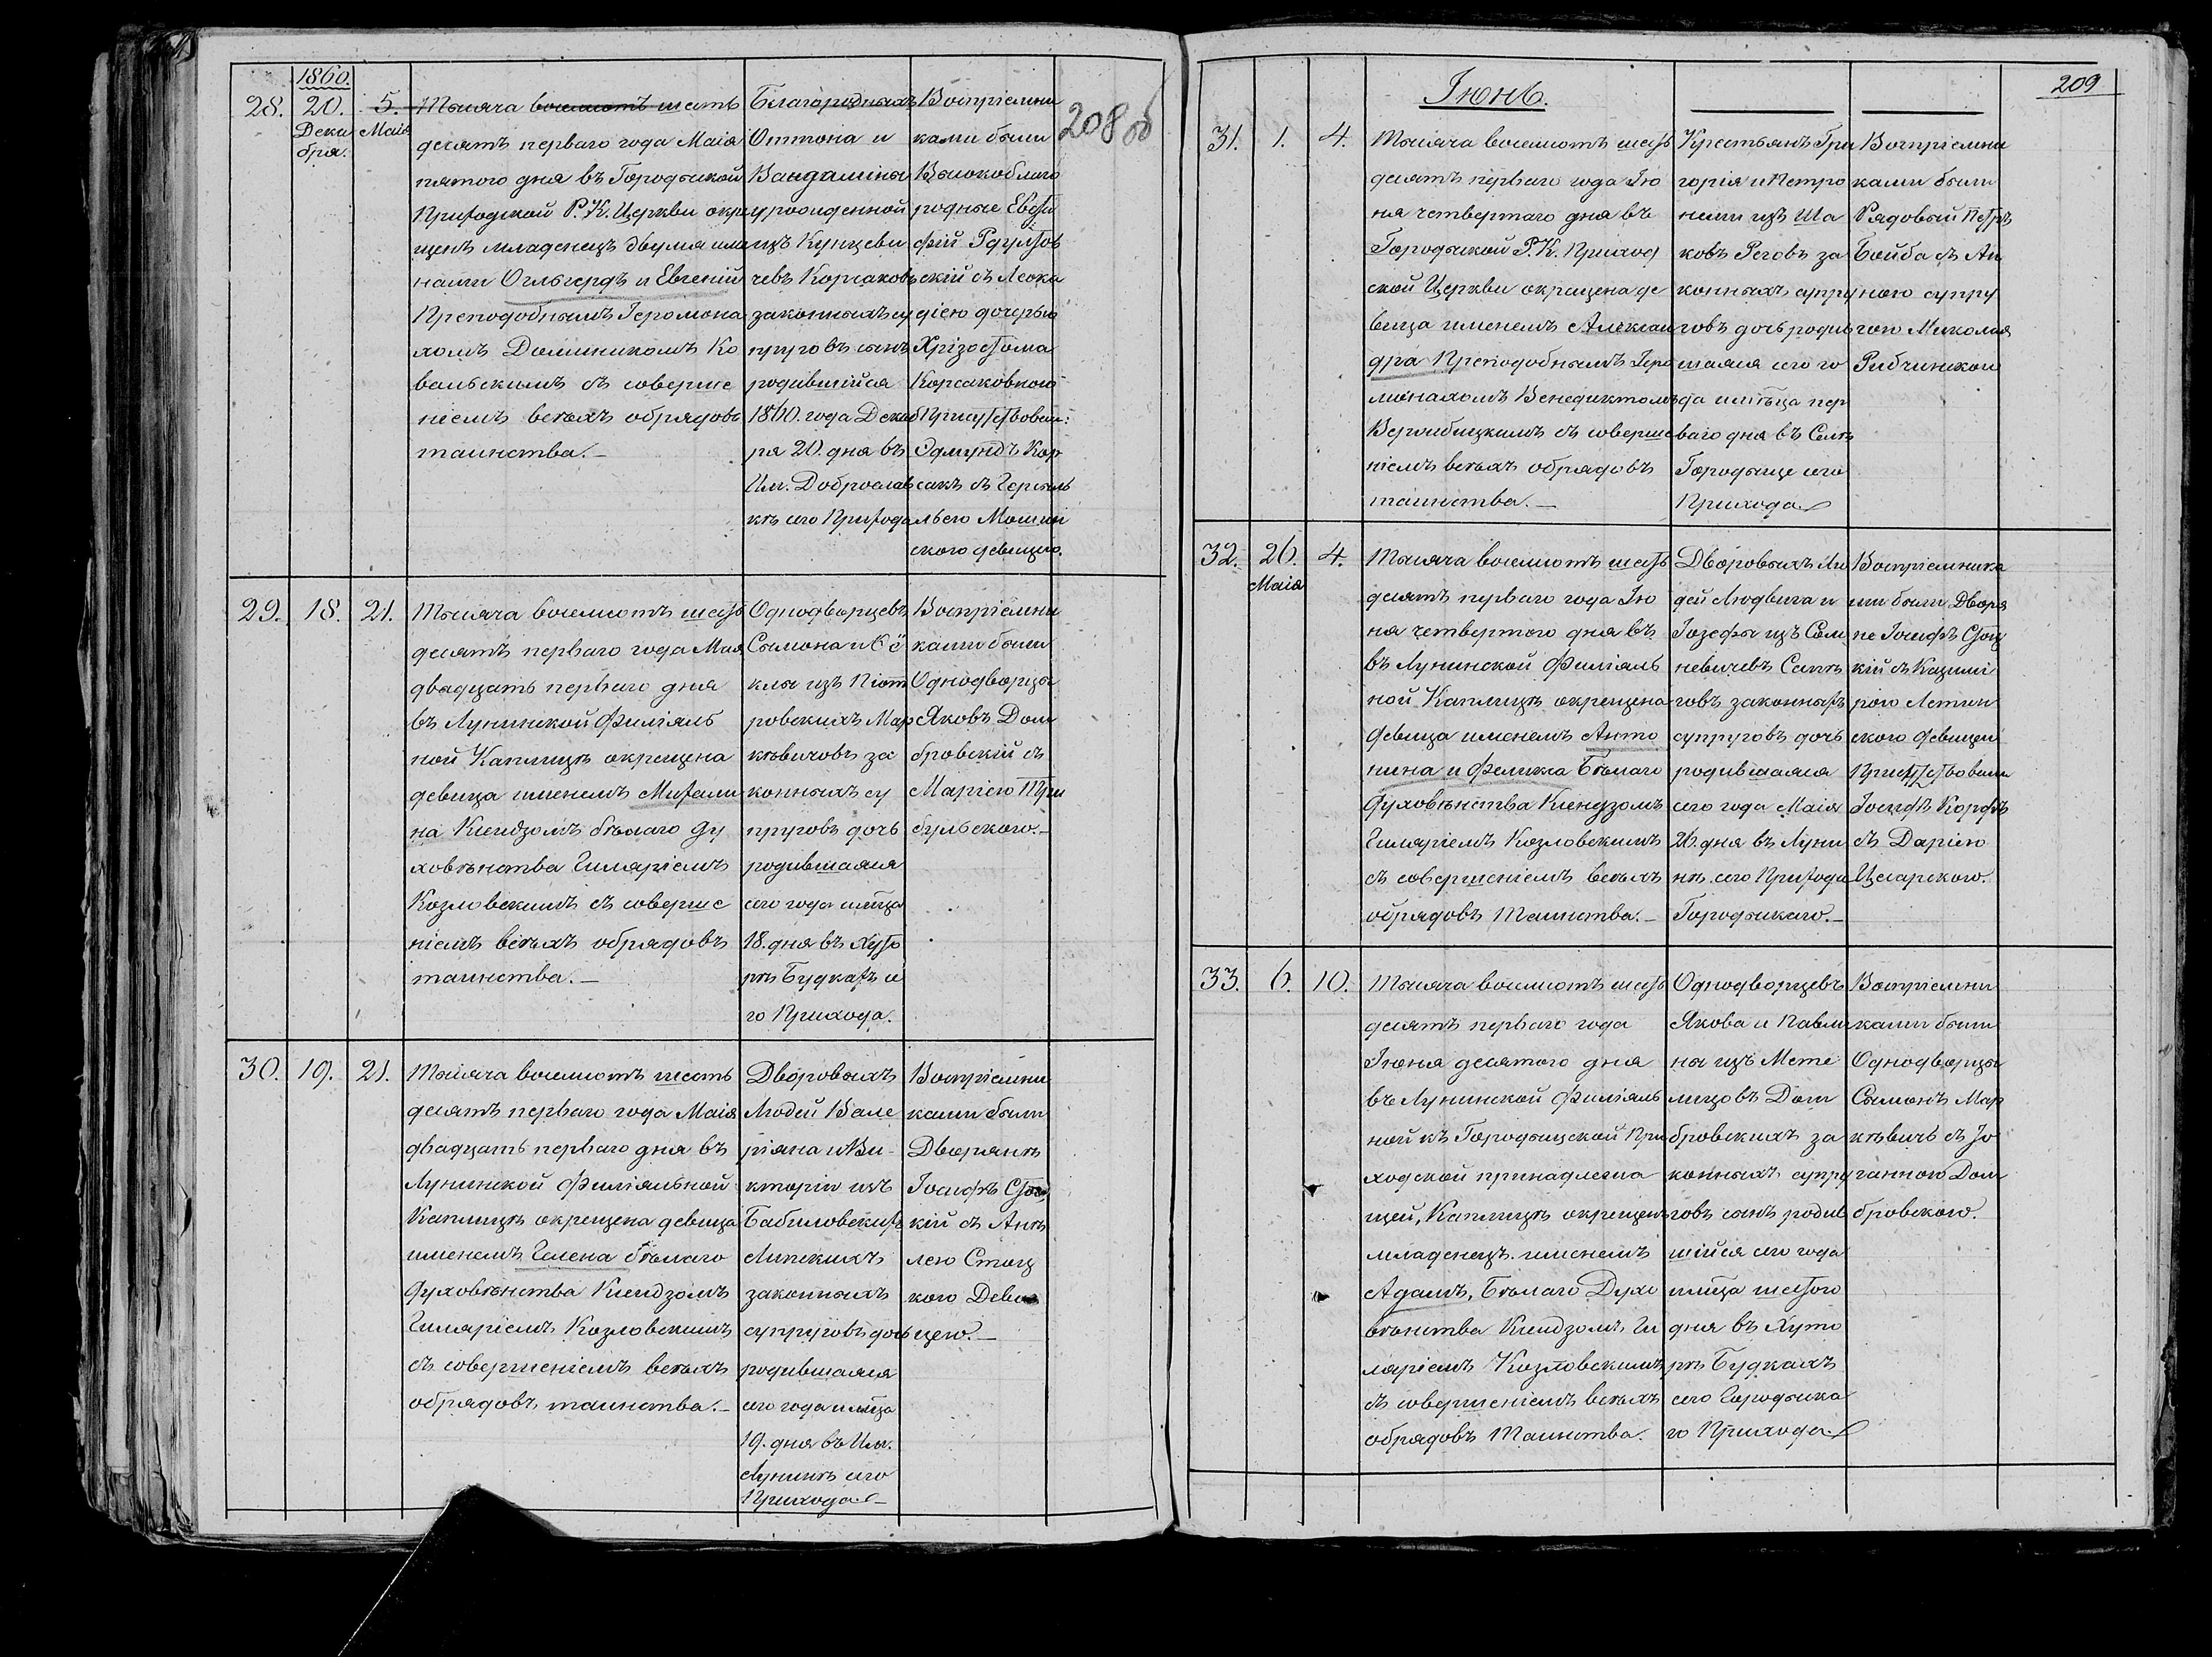 1860.
28. 20. Дека бря. 5. Маія
Тысяча восемьсотъ шесть
десятъ перваго года Маія
пятого дня въ Городыской
Приходской Р. К. Церкви окре
щенъ младенецъ двумя име
нами Ольгердъ и Евгеній
Преподобнымъ Іеромона
хомъ Доминикомъ Ко
вальскимъ съ соверше
ніемъ всѣхъ обрядовъ
таинства. –
Благородныхъ
Оттона и
Вандалины
урожденной
изъ Кунцеви
чевъ Корсаковъ
законныхъ су
пруговъ сынъ
родившійся
1860. года Декаб
ря 20. дня въ
Им. Доброслав
кѣ сего Прихода
Воспріемни
ками были
Высокоблаго
родные
скій съ Леока
дією дочерью
Хрізостома
Корсаковною
Присутствовали:
Эдмундъ Кор
сакъ съ
льею
ского девицею.
208 об
29. 18. 21.
Тысяча восемьсотъ шесть
десятъ перваго года Мая
двадцать перваго дня
въ Лунинской Филіяль
ной Каплицѣ окрещена
девица именемъ Михали
на Ксендзомъ бѣлаго Ду
ховѣнства Гиляріемъ
Козловскимъ съ соверше
ніемъ всѣхъ обрядовъ
таинства. –
Однодворцевъ
Сымона и Ѳё
клы изъ Піот
ровскихъ Мар
кѣвичовъ за
конныхъ су
пруговъ дочь
родившаяся
сего года и мѣца
18. дня въ Хуто
рѣ Будкахъ се
го Прихода.
Воспріемни
ками были
Однодворцы
Яковъ Дом
бровскій съ
Маріею
бульского. –
30. 19. 21.
Тысяча восемьсотъ шесть
десятъ перваго года Маія
двадцать перваго дня въ
Лунинской Филіяльной
Каплицѣ окрещена девица
именемъ Гелена бѣлаго
Духовѣнства Ксендзомъ
Гиляріемъ Козловскимъ
съ совершеніемъ всѣхъ
обрядовъ таинства. –
Дворовыхъ
Людей Вале
ріяна и Ви-
кторіи изъ
Бабиловскихъ
Липскихъ
законныхъ
супруговъ дочь
родившаяся
сего года и мѣца
19. дня въ Им.
Лунинѣ сего
Прихода –
Воспріемни
ками были
Дворянѣ
Іосифъ Стоц
кій съ Анѣ
лею Стоц
кого Деви
цею. –
209
Іюнь.
31. 1. 4.
Тысяча восемьсотъ шесть
десятъ перваго года Ію
ня четвертаго дня въ
Городыской Р. К. Приход
ской Церкви окрещена де
вица именемъ Алексан
дра Преподобнымъ Іеро
монахомъ Венедиктомъ
съ соверше
ніемъ всѣхъ обрядовъ
таинства. –
Крестьянъ Гри
горія и Петро
нели изъ Ша
ковъ Реговъ за
конныхъ супру
говъ дочь родив
шаяся сего го
да и мѣсяца пер
ваго дня въ Селѣ
Городыще сего
Прихода.
Воспріемни
ками были
Рядовый Петръ
Бойба съ Ан
ною супру
гою Миколая
Рибчинскою
32. 26. Маія 4.
Тысяча восемьсотъ шесть
десятъ перваго года Ію
ня четвертого дня въ
въ Лунинской Филіяль
ной Каплицѣ окрещена
девица именемъ Анто
нина и Фелика Бѣлаго
Духовѣнства Ксендзомъ
Гиляріемъ Козловскимъ
съ совершеніемъ всѣхъ
обрядовъ Таинства. –
Дворовыхъ Лю
дей Людвига и
Іозефы изъ Сем
невичевъ
говъ законныхъ
супруговъ дочь
родившаяся
сего года Маія
26. дня въ Луни
нѣ сего Прихода
Городыскаго. –
Воспріемника
ми были Дворя
не Іосифъ Стоц
кій съ Казими
рою
ского девицею
Присутствовали
Іосифъ Корфъ
съ Даріею
Цесарского.
33. 6. 10.
Тысяча восемьсотъ шесть
десятъ перваго года
Іюня десятого дня
въ Лунинской Филіяль
ной къ Городыщской При
ходской принадлежа
щей, Каплицѣ окрещенъ
младенецъ именемъ
Адамъ, Бѣлаго Духо
вѣнства Ксендзомъ Ги
ляріемъ Козловскимъ
съ совершеніемъ всѣхъ
обрядовъ Таинства.
Однодворцевъ
Якова и Павли
ны изъ Мете
лицовъ Дом
бровскихъ за
конныхъ супру
говъ сынъ родив
шійся сего года
мѣца шестого
дня въ Хуто
рѣ Будкахъ
сего Городыска
го Прихода.
Воспріемни
ками были
Однодворцы
Сымонъ Мар
кѣвичъ съ Іо
ганною Дом
бровского.